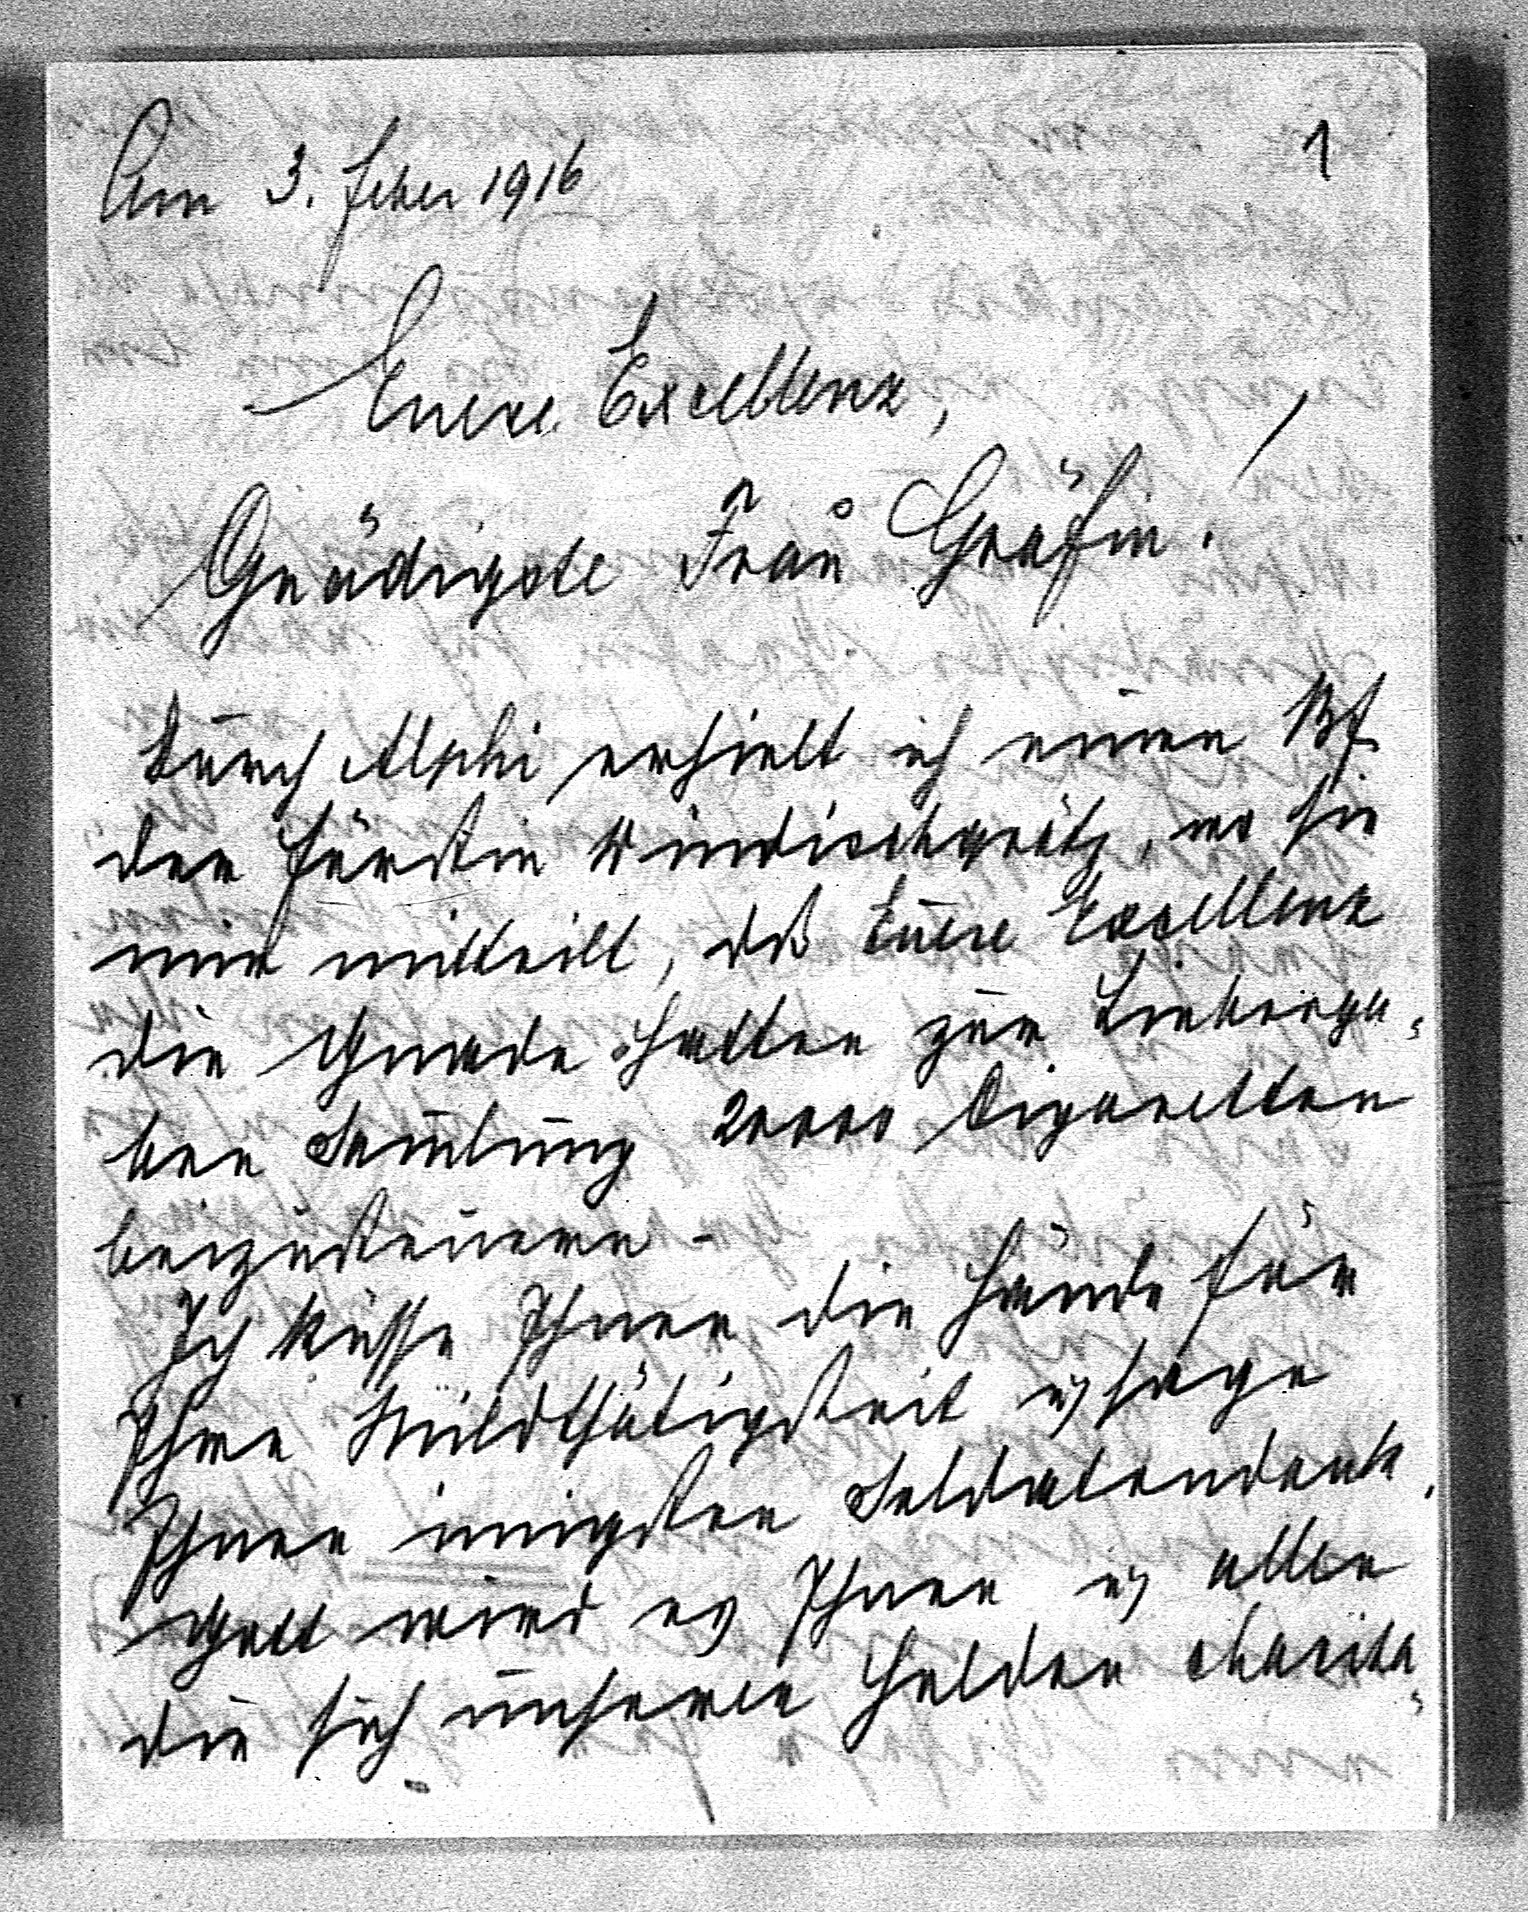 Am 3. Feber 1916
1
Euere Excellenz,
Gnädigste Frau Gräfin!
Durch Alphi erhielt ich einen Bf.
der Fürstin Windischgrätz, wo sie
mir mitteilt, dß Euere Excellenz
die Gnade hatten zur Liebesga-
ben Samlung 20000 Cigaretten
beizusteuern –
Ich küsse Ihnen die Hände für
Ihre Mildthätigkeit u sage
Ihnen innigsten Soldatendank.
Gott wird es Ihnen u allen
die sich unseren Helden charita-